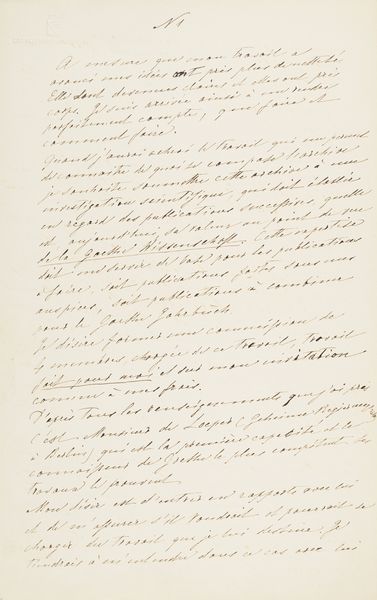 No 1
A mesure que mon travail a
avancé mes idées ont pris plus de netteté.
Elles sont devenues claires et elles ont pris
corps. Je suis arrivée ainsi à me rendre
parfaitement compte, que faire et
comment faire.
Quand j'aurai achevé le travail qui me permet
de connaître de quoi se compose l'archive
je souhaite soumettre cette archive à une
investigation scientifique, qui doit établir
en regard des publications successives, quelle
est aujourd'hui sa valeur au point de vue
de la Goethe Wissenschaft. Cette expertise
doit me servir de base pour les publications
à faire, soit publications faites sous mes
auspices, soit publications à combiner
pour le Goethe Jahrbuch.
Je désire former une commission de
4 membres chargée de ce travail, travail
fait pour moi et sur mon invitation
comme à mes frais.
D'après tous les renseignements que j'ai pris
c'est Monsieur de Loeper (Geheime Regierungs
à Berlin) qui est la première capacité et le
connaisseur de Goethe le plus compétent. Ses
travaux le prouvent.
Mon désir est d'entrer en rapports avec lui
et de m'assurer s'il voudrait et pourrait se
charger du travail que je lui destine. Je
tiendrais à m'entendre dans ce cas avec lui